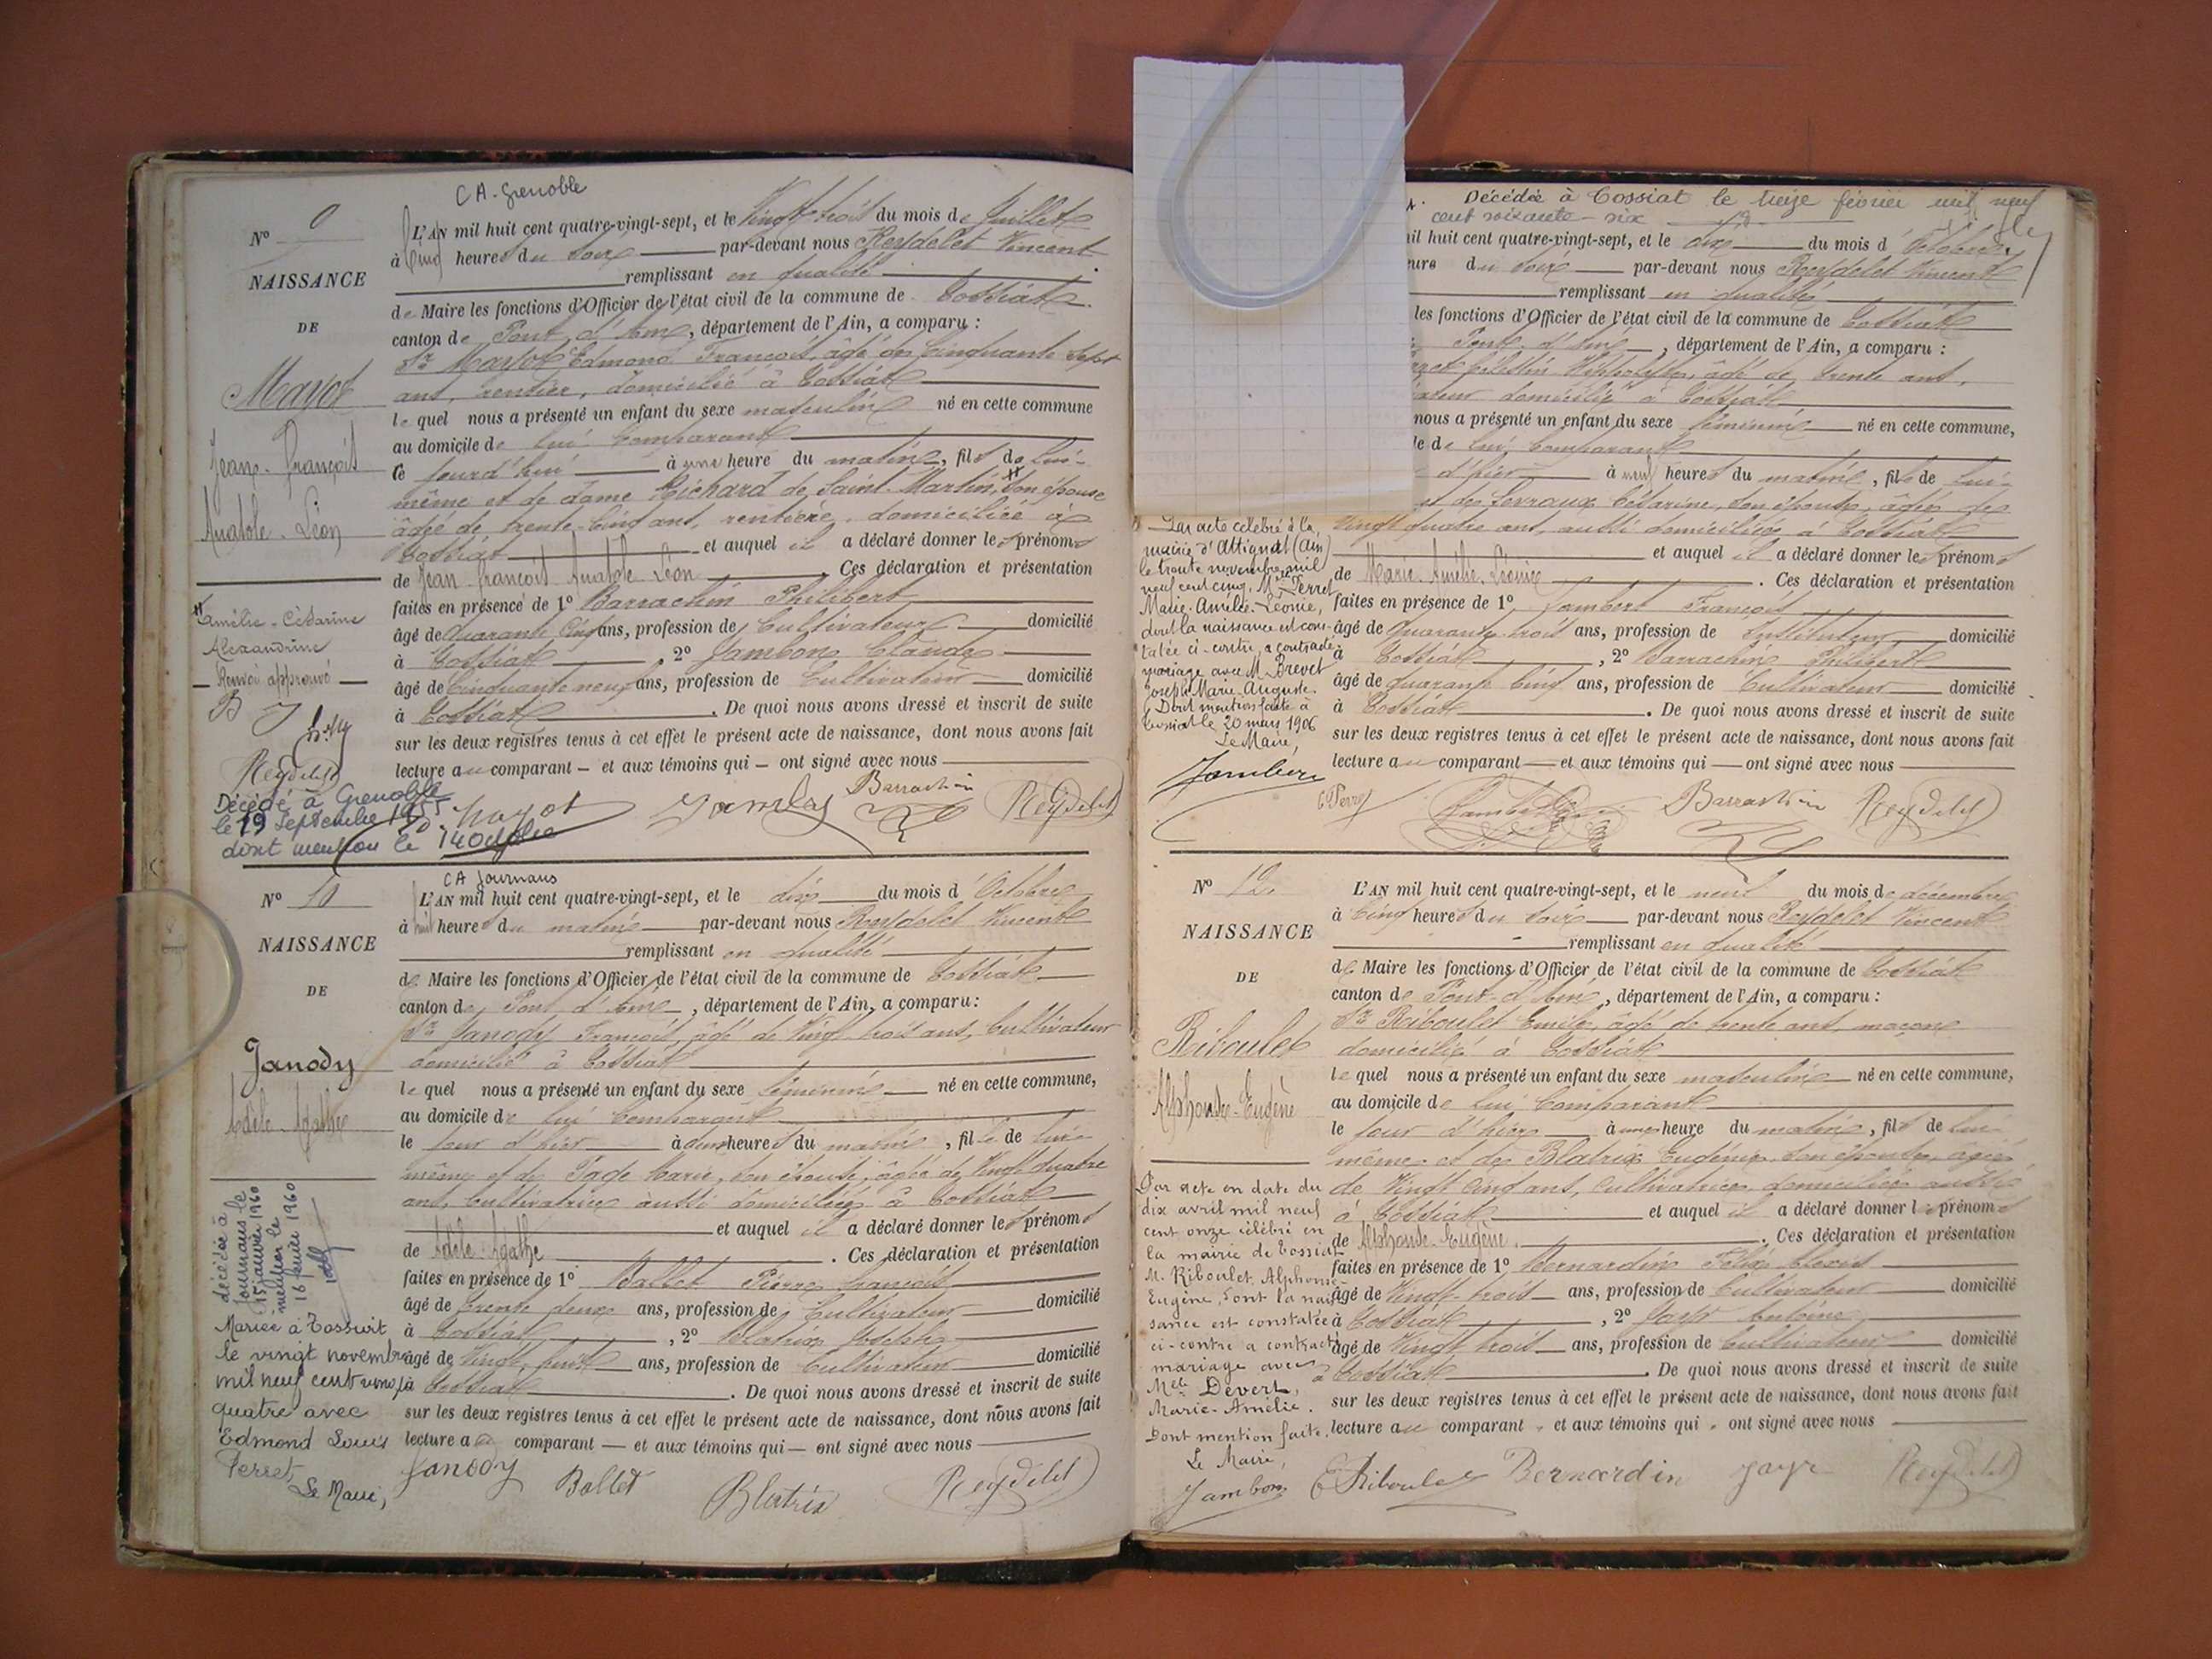 CA. Grenoble
N° 9
NAISSANCE
DE
Mayot
Jean-François
Anatole-Léon
L'AN mil huit cent quatre-vingt-sept, et le vingt trois du mois de Juillet
à cinq heures du soir par-devant nous Reydelet Vincent
remplissant en qualité
de Maire les fonctions d'Officier de l'état civil de la commune de Tossiat
canton de Pont d'Ain, département de l'Ain, a comparu :
Sr Mayot Edmond François, âgé de cinquante sept
ans, rentier, domicilié à Tossiat
lequel nous a présenté un enfant du sexe masculin né en cette commune
au domicile de lui comparant
ce jourd'hui à une heure du matin, fils de lui-
même et de dame Richard de Saint-Martin, # son épouse
âgée de trente-cinq ans, rentière, domiciliée à
Tossiat et auquel il a déclaré donner les prénoms
de Jean François Anatole Léon. Ces déclaration et présentation
faites en présence de 1° Barrachin Philibert
âgé de quarante cinq ans, profession de cultivateur domicilié
à Tossiat, 2° Jambon Claude
âgé de cinquante neuf ans, profession de cultivateur domicilié
à Tossiat. De quoi nous avons dressé et inscrit de suite
sur les deux registres tenus à cet effet le présent acte de naissance, dont nous avons fait
lecture au comparant - et aux témoins qui - ont signé avec nous
# Amélie-Césarine
Alexandrine
Renvoi approuvé
B J
Reydelet
Décédé à Grenoble
le 19 Septembre 1955
dont mention le 14 Octobre
Mayot Barrachin Reydelet
CA Journans
N° 10
NAISSANCE
DE
Janody
Adèle-Agathe
L'AN mil huit cent quatre-vingt-sept, et le dix du mois d'Octobre
à huit heures du matin par-devant nous Reydelet Vincent
remplissant en qualité
de Maire les fonctions d'Officier de l'état civil de la commune de Tossiat
canton de Pont d'Ain, département de l'Ain, a comparu :
Sr Janody François, âgé de vingt-trois ans, cultivateur
domicilié à Tossiat
lequel nous a présenté un enfant du sexe féminin né en cette commune,
au domicile de lui comparant
le jour d'hier à deux heures du matin, fille de lui-
même et de Page Marie, son épouse, âgée de vingt quatre
ans, cultivatrice aussi domiciliée à Tossiat
et auquel il a déclaré donner les prénoms
de Adèle-Agathe. Ces déclaration et présentation
faites en présence de 1° Ballet Pierre François
âgé de trente deux ans, profession de cultivateur domicilié
à Tossiat, 2° Blatrix
âgé de vingt huit ans, profession de cultivateur domicilié
à Tossiat. De quoi nous avons dressé et inscrit de suite
sur les deux registres tenus à cet effet le présent acte de naissance, dont nous avons fait
lecture au comparant - et aux témoins qui - ont signé avec nous
décédée à
Journans le
15 janvier 1960
mention le
16 février 1960
Mariée à Tossiat
le vingt novembre
mil neuf cent vingt
quatre avec
Edmond Louis
Perret
Le Maire,
Janody Ballet Blatrix Reydelet
Décédée à Tossiat le treize février mil neuf
cent soixante-six
mil huit cent quatre-vingt-sept, et le dix du mois d'Octobre
eure du soir par-devant nous Reydelet Vincent
remplissant en qualité
les fonctions d'Officier de l'état civil de la commune de Tossiat
Pont d'Ain, département de l'Ain, a comparu :
âgé de trente ans,
domicilié à Tossiat
nous a présenté un enfant du sexe féminin né en cette commune,
le de lui comparant
d'hier à neuf heures du matin, fille de lui-
et de Ferraux Césarine, son épouse, âgée de
vingt quatre ans, aussi domiciliée à Tossiat
et auquel il a déclaré donner les prénoms
de Marie-Amélie-Léonie. Ces déclaration et présentation
faites en présence de 1° Jambert François
âgé de quarante trois ans, profession de Instituteur domicilié
à Tossiat, 2° Barrachin Philibert
âgé de quarante cinq ans, profession de cultivateur domicilié
à Tossiat. De quoi nous avons dressé et inscrit de suite
sur les deux registres tenus à cet effet le présent acte de naissance, dont nous avons fait
lecture au comparant - et aux témoins qui - ont signé avec nous
Par acte célébré à la
mairie d'Attignat (Ain)
le trente novembre mil
neuf cent cinq, Mlle Perret
Marie-Amélie-Léonie,
dont la naissance est cons-
tatée ci-contre, a contracté
mariage avec M. Brevet
Joseph-Marie-Auguste.
Dont mention faite à
Tossiat le 20 mars 1906
Le Maire,
Jambon
Perret Barrachin Reydelet
N° 12.
NAISSANCE
DE
Riboulet
Alphonse-Eugène
L'AN mil huit cent quatre-vingt-sept, et le neuf du mois de décembre
à cinq heures du soir par-devant nous Reydelet Vincent
remplissant en qualité
de Maire les fonctions d'Officier de l'état civil de la commune de Tossiat
canton de Pont-d'Ain, département de l'Ain, a comparu :
Sr Riboulet Emile, âgé de trente ans, maçon
domicilié à Tossiat
lequel nous a présenté un enfant du sexe masculin né en cette commune,
au domicile de lui comparant
le jour d'hier à une heure du matin, fils de lui-
même et de Blatrix Eugénie, son épouse, âgée
de vingt cinq ans, cultivatrice, domiciliée aussi
à Tossiat et auquel il a déclaré donner les prénoms
de Alphonse-Eugène. Ces déclaration et présentation
faites en présence de 1° Bernardin Félix Alexis
âgé de vingt-trois ans, profession de cultivateur domicilié
à Tossiat, 2° Jayr Antoine
âgé de vingt trois ans, profession de cultivateur domicilié
à Tossiat. De quoi nous avons dressé et inscrit de suite
sur les deux registres tenus à cet effet le présent acte de naissance, dont nous avons fait
lecture au comparant - et aux témoins qui - ont signé avec nous
Par acte en date du
dix avril mil neuf
cent onze célébré en
la mairie de Tossiat
M. Riboulet Alphonse-
Eugène, dont la nais-
sance est constatée
ci-contre a contracté
mariage avec
Melle Devert,
Marie-Amélie.
Dont mention faite.
Le Maire,
Jambon
E Riboulet Bernardin Jayr Reydelet